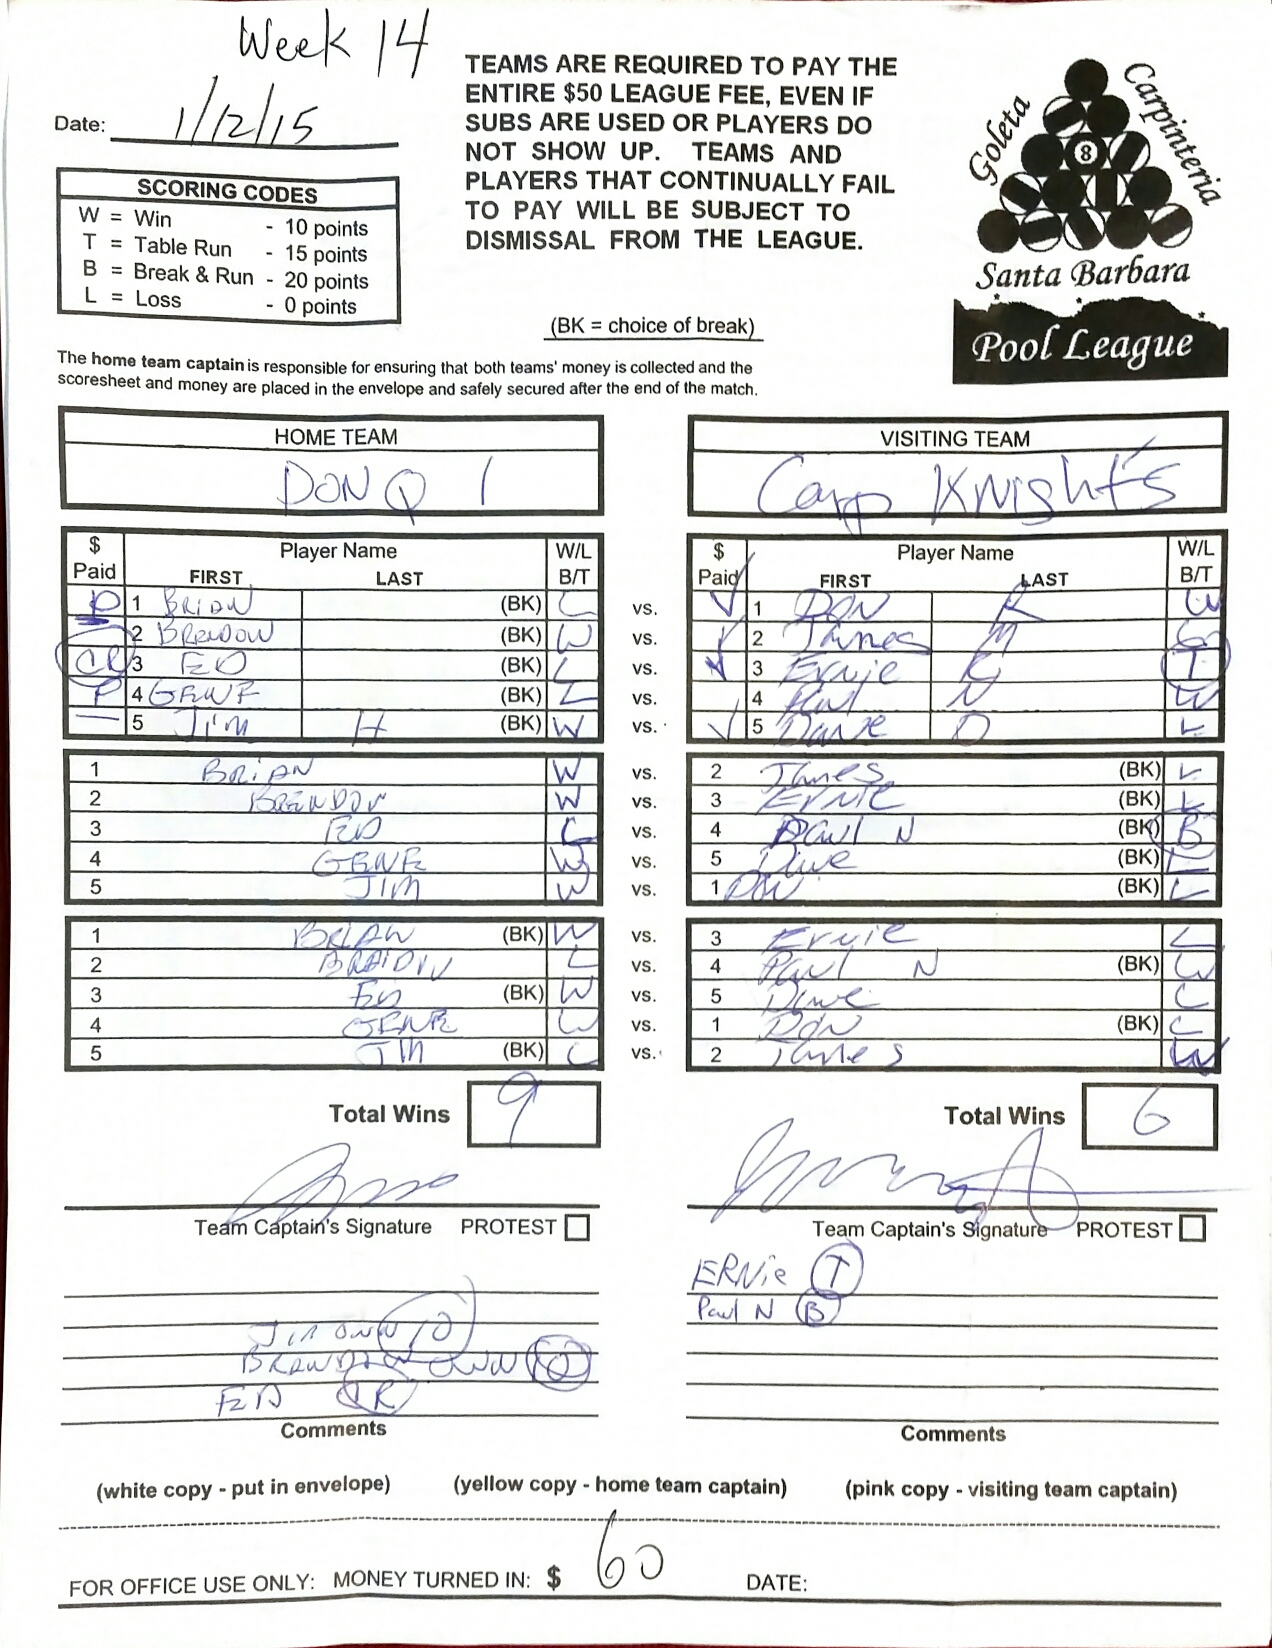 Week 14
Date: 1/12/15
TEAMS ARE REQUIRED TO PAY THE
ENTIRE $50 LEAGUE FEE, EVEN IF
SUBS ARE USED OR PLAYERS DO
NOT SHOW UP. TEAMS AND
PLAYERS THAT CONTINUALLY FAIL
TO PAY WILL BE SUBJECT TO
DISMISSAL FROM THE LEAGUE.
Goleta Carpinteria
8
Santa Barbara
Pool League
SCORING CODES
W = Win - 10 points
T = Table Run - 15 points
B = Break & Run - 20 points
L = Loss - 0 points
(BK = choice of break)
The home team captain is responsible for ensuring that both teams' money is collected and the
scoresheet and money are placed in the envelope and safely secured after the end of the match.
HOME TEAM VISITING TEAM
DON Q 1 Carp Knight's
$ Paid Player Name FIRST LAST W/L B/T $ Paid Player Name FIRST LAST W/L B/T
P 1 BRIAN (BK) L vs. 1 DON R W
2 BRENDON (BK) W vs. 2 James M
CR 3 ED (BK) L vs. 3 Ernie G T
P 4 GENE (BK) L vs. 4 Paul N W
5 Jim H (BK) W vs. 5 Dave D L
1 BRIAN W vs. 2 James (BK) L
2 BRENDON W vs. 3 ERNIE (BK) L
3 ED L vs. 4 Paul N (BK) B
4 GENE W vs. 5 Dave (BK) L
5 JIM W vs. 1 DON (BK) L
1 BRIAN (BK) W vs. 3 Ernie L
2 BRENDON L vs. 4 Paul N (BK) W
3 ED (BK) W vs. 5 Dave L
4 GENE W vs. 1 DON (BK) L
5 JIM (BK) L vs. 2 James W
Total Wins 9 Total Wins 6
Team Captain's Signature PROTEST Team Captain's Signature PROTEST
ERNie T
Paul N B
BRENDON
ED CR
Comments Comments
(white copy - put in envelope) (yellow copy - home team captain) (pink copy - visiting team captain)
FOR OFFICE USE ONLY: MONEY TURNED IN: $ 60 DATE: